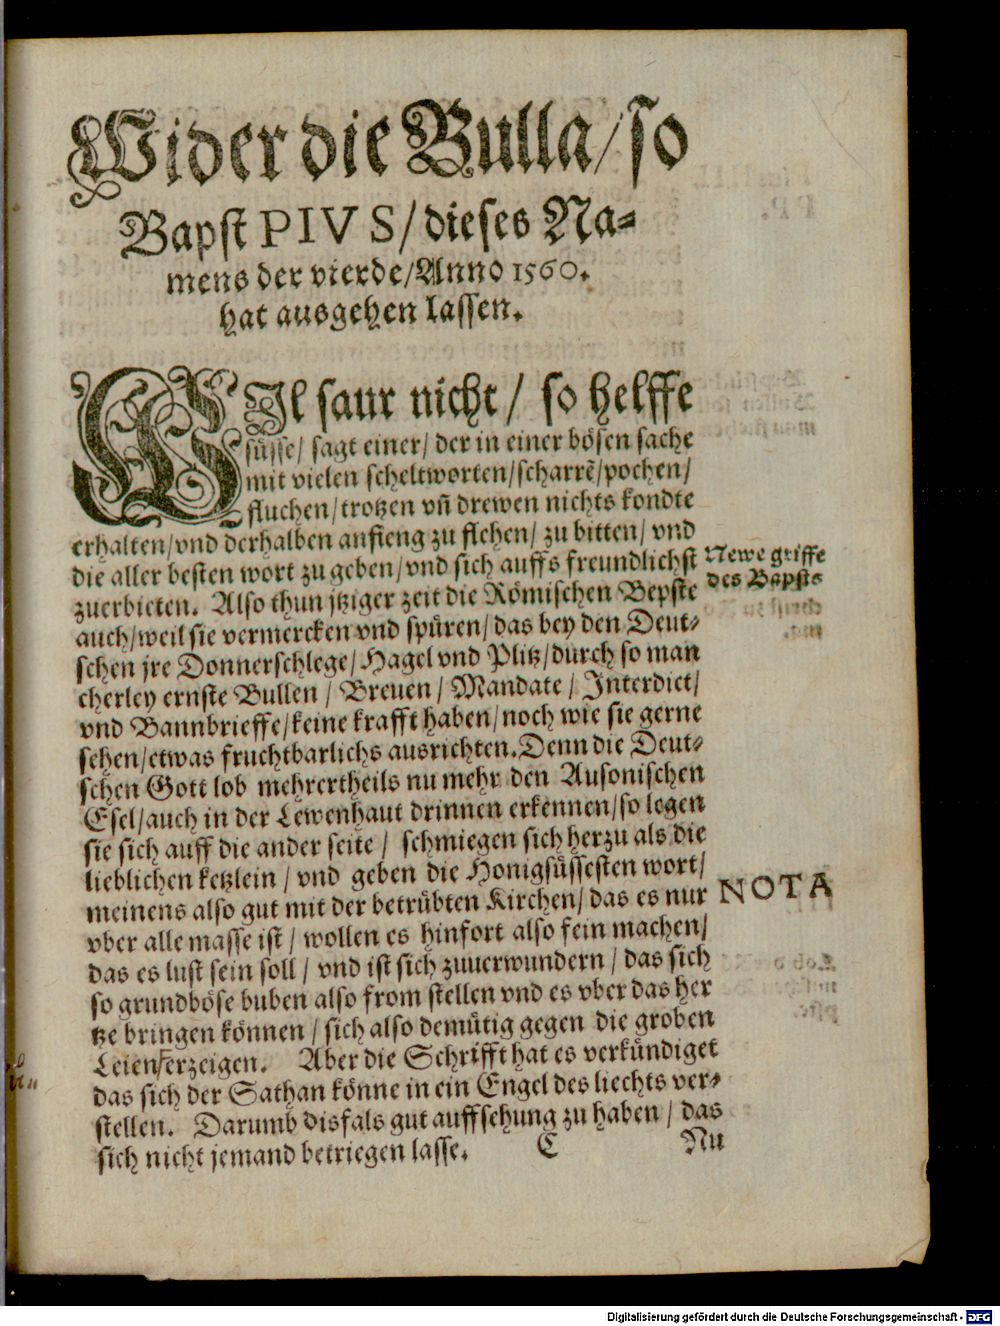 Wider die Bulla/ so
Bapst PIVS/ dieses Na-
mens der vierde/ Anno 1560.
hat ausgehen lassen.
WIl saur nicht / so helffe
süsse/ sagt einer/ der in einer bösen sache
mit vielen scheltworten/ scharrẽ/ pochen/
fluchen/ trotzen vñ drewen nichts kondte
erhalten/ vnd derhalben anfieng zu flehen/ zu bitten/ vnd
die aller besten wort zu geben/ vnd sich auffs freundlichst
Newe griffe
des Bapsts
zuerbieten. Also thun jtziger zeit die Römischen Bepste
auch/ weil sie vermercken vnd spüren/ das bey den Deut-
schen jre Donnerschlege/ Hagel vnd Plitz/ durch so man
cherley ernste Bullen / Breuen / Mandate / Interdict/
vnd Bannbrieffe/ keine krafft haben/ noch wie sie gerne
sehen/ etwas fruchtbarlichs ausrichten. Denn die Deut-
schen Gott lob mehrertheils nu mehr den Ausonischen
Esel/ auch in der Lewenhaut drinnen erkennen/ so legen
sie sich auff die ander seite / schmiegen sich herzu als die
lieblichen ketzlein / vnd geben die Honigsüssesten wort/
meinens also gut mit der betrübten Kirchen/ das es nur
NOTA
vber alle masse ist / wollen es hinfort also fein machen/
das es lust sein soll / vnd ist sich zuuerwundern / das sich
so grundböse buben also from stellen vnd es vber das her
tze bringen können / sich also demütig gegen die groben
Leien erzeigen. Aber die Schrifft hat es verkündiget
das sich der Sathan könne in ein Engel des liechts ver-
stellen. Darumb disfals gut auffsehung zu haben / das
sich nicht jemand betriegen lasse.
C
Nu
Digitalisierung gefördert durch die Deutsche Forschungsgemeinschaft - DFG